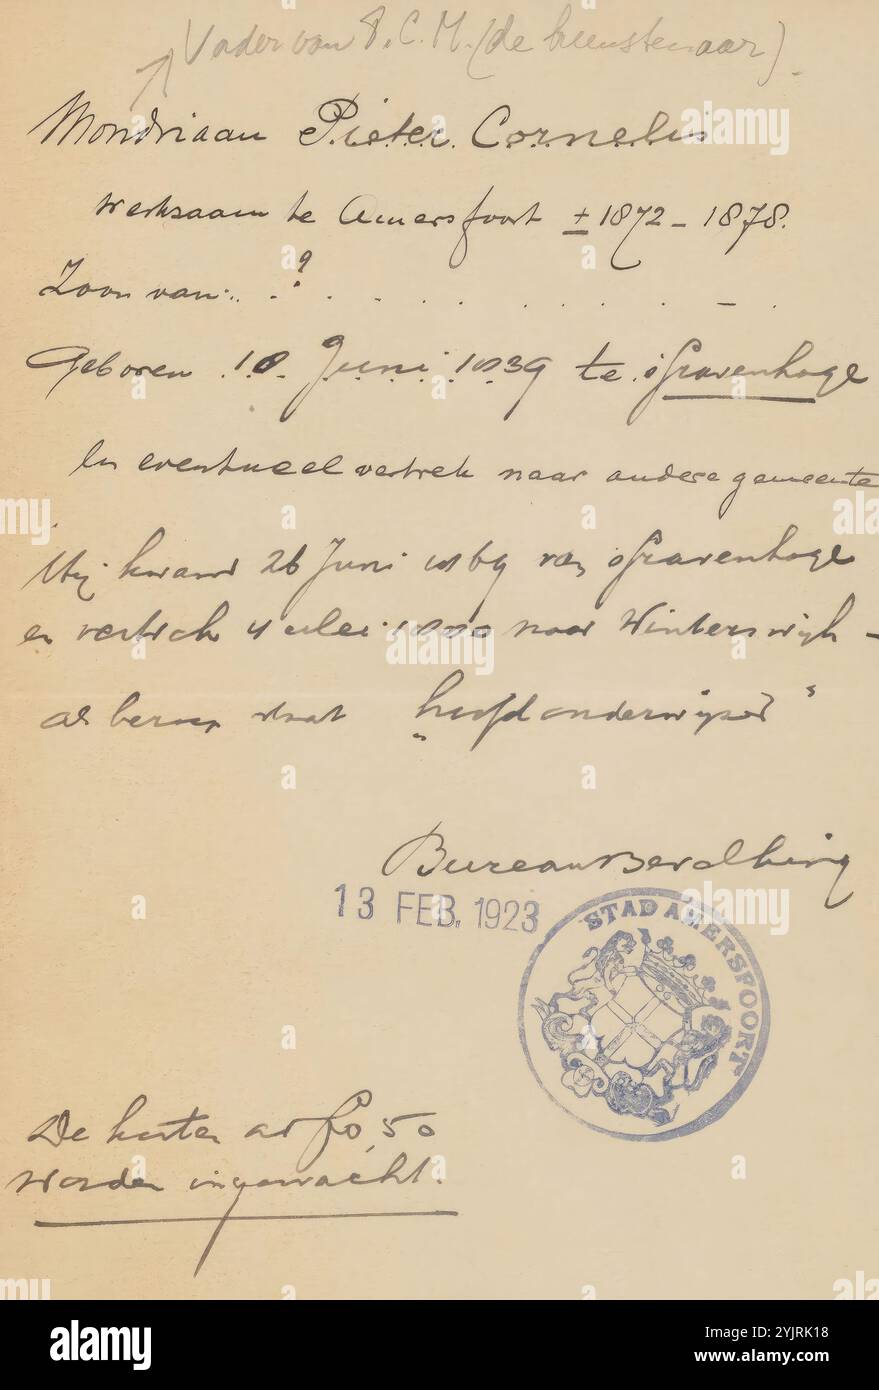 Vader van P. C. M. (de kunstenaar).
Mondriaan Pieter Cornelis
werkzaam te Amersfoort ± 1872 - 1878.
Zoon van: . ? . . . . . . . . - .
Geboren 18 Juni 1839 te 's Gravenhage
en eventueel vertrek naar andere gemeente
Hij kwam 26 Juni 1869 van 's Gravenhage
en vertrok 4 1880 naar Winterswijk -
als beroep staat "hoofdonderwijzer"
Bureau
13 FEB. 1923
STAD AMERSFOORT
De kosten ad f 0,50
worden ingewacht.
alamy
Image ID: 2YJRK18
www.alamy.com